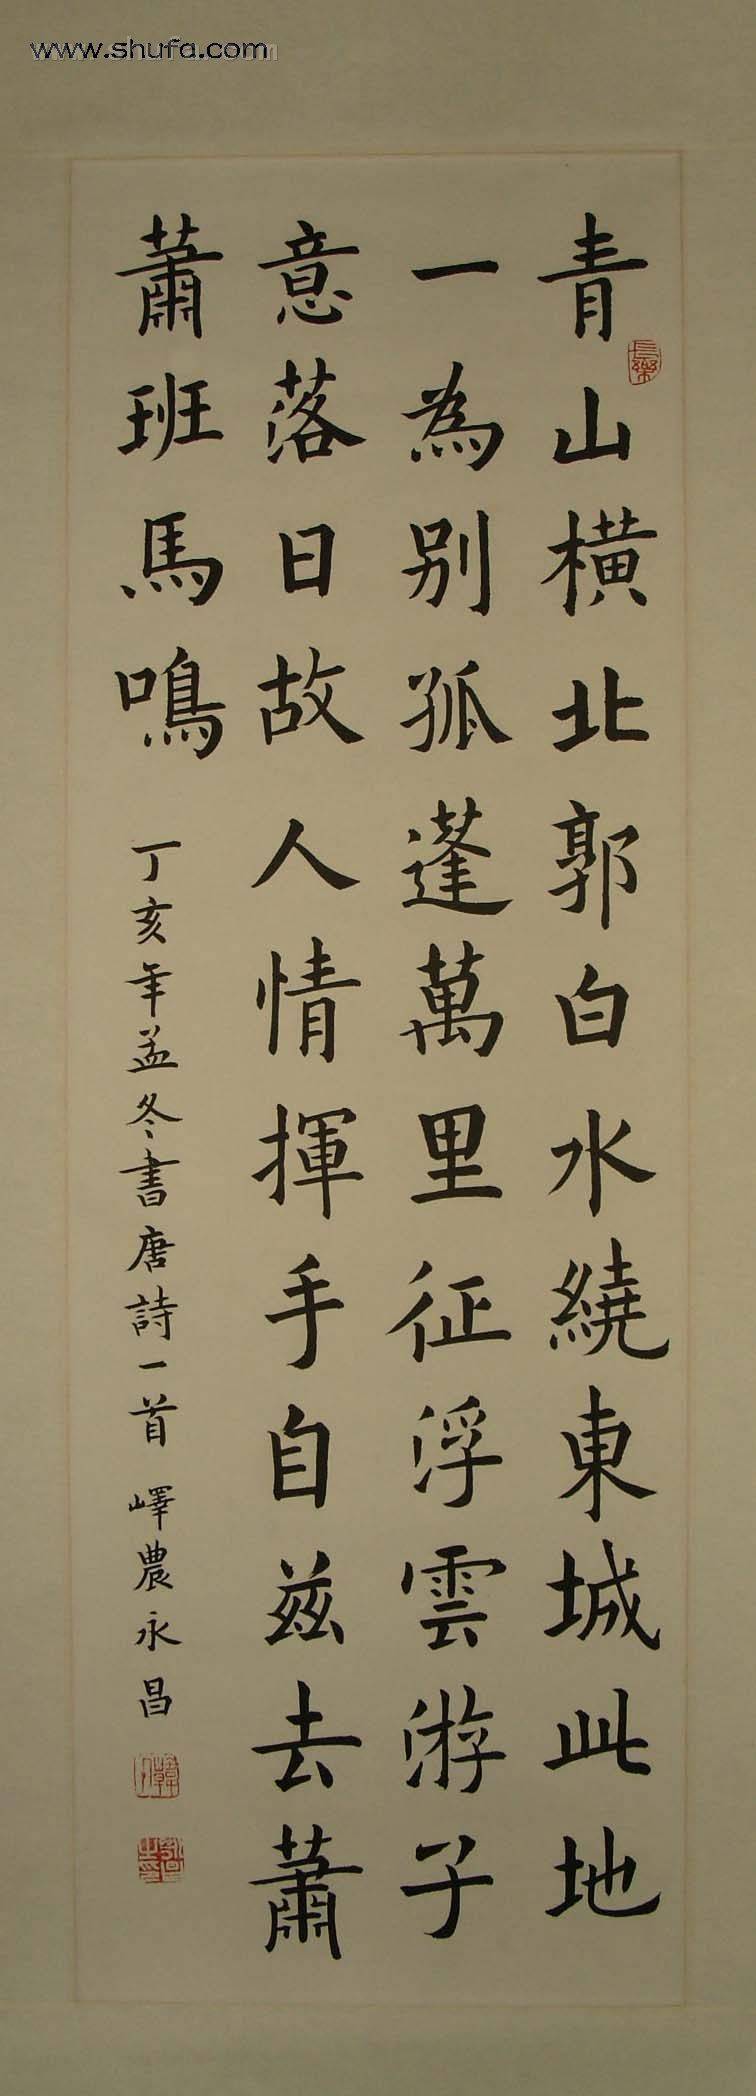 www.shufa.com
青山橫北郭白水繞東城此地
一為別孤蓬萬里征浮雲游子
意落日故人情揮手自兹去蕭
蕭班馬鳴
丁亥年孟冬書唐詩一首 嶧農永昌
長樂